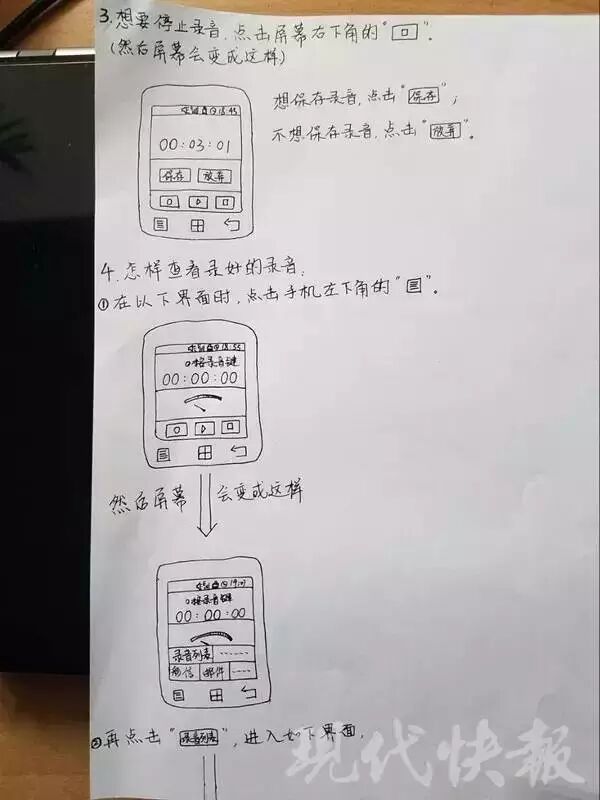 3.想要停止录音,点击屏幕右下角的“□”.
(然后屏幕会变成这样)
18:45
00:03:01
保存 放弃
想保存录音,点击“保存”;
不想保存录音,点击“放弃”.
4.怎样查看录好的录音.
①在以下界面时,点击手机左下角的“目”.
18:55
按录音键
00:00:00
然后屏幕会变成这样
按录音键
00:00:00
录音列表 -----
短信 邮件 ----
②再点击“录音列表”,进入如下界面.
现代快報